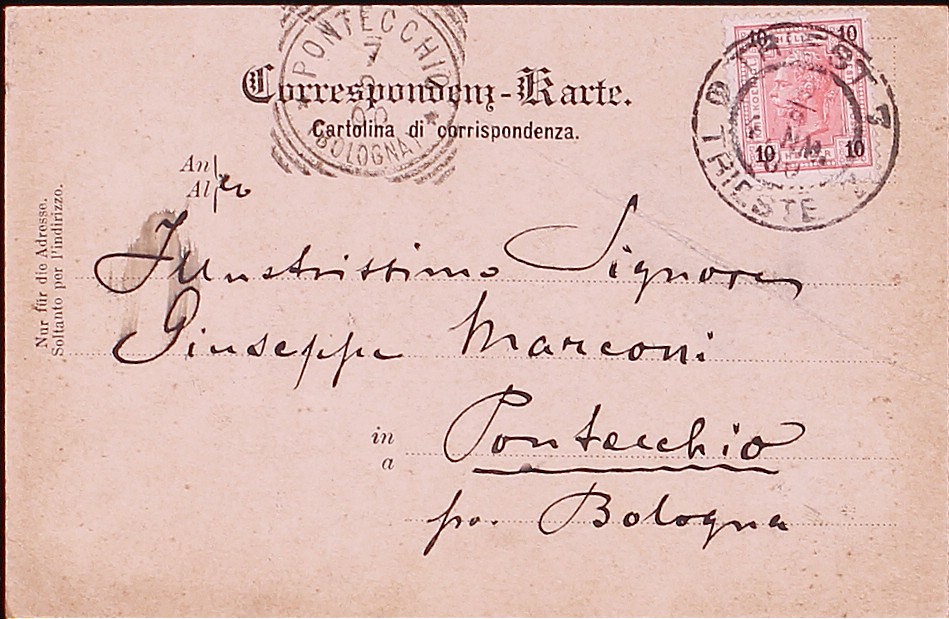 PONTECCHIO
7
00
(BOLOGNA)
10 10
10 10
TRIEST 3
TRIESTE
Correspondenz-Karte.
Cartolina di corrispondenza.
An
Al
Nur für die Adresse.
Soltanto per l'indirizzo.
Illustrissimo Signore
Giuseppe Marconi
in
a
Pontecchio
Bologna